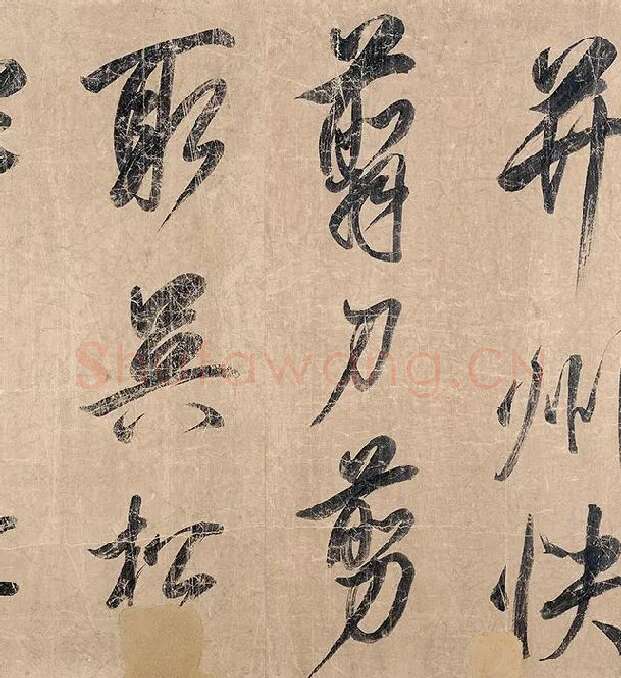 并州快
翦刀剪
取吳松
Shufawang.CN